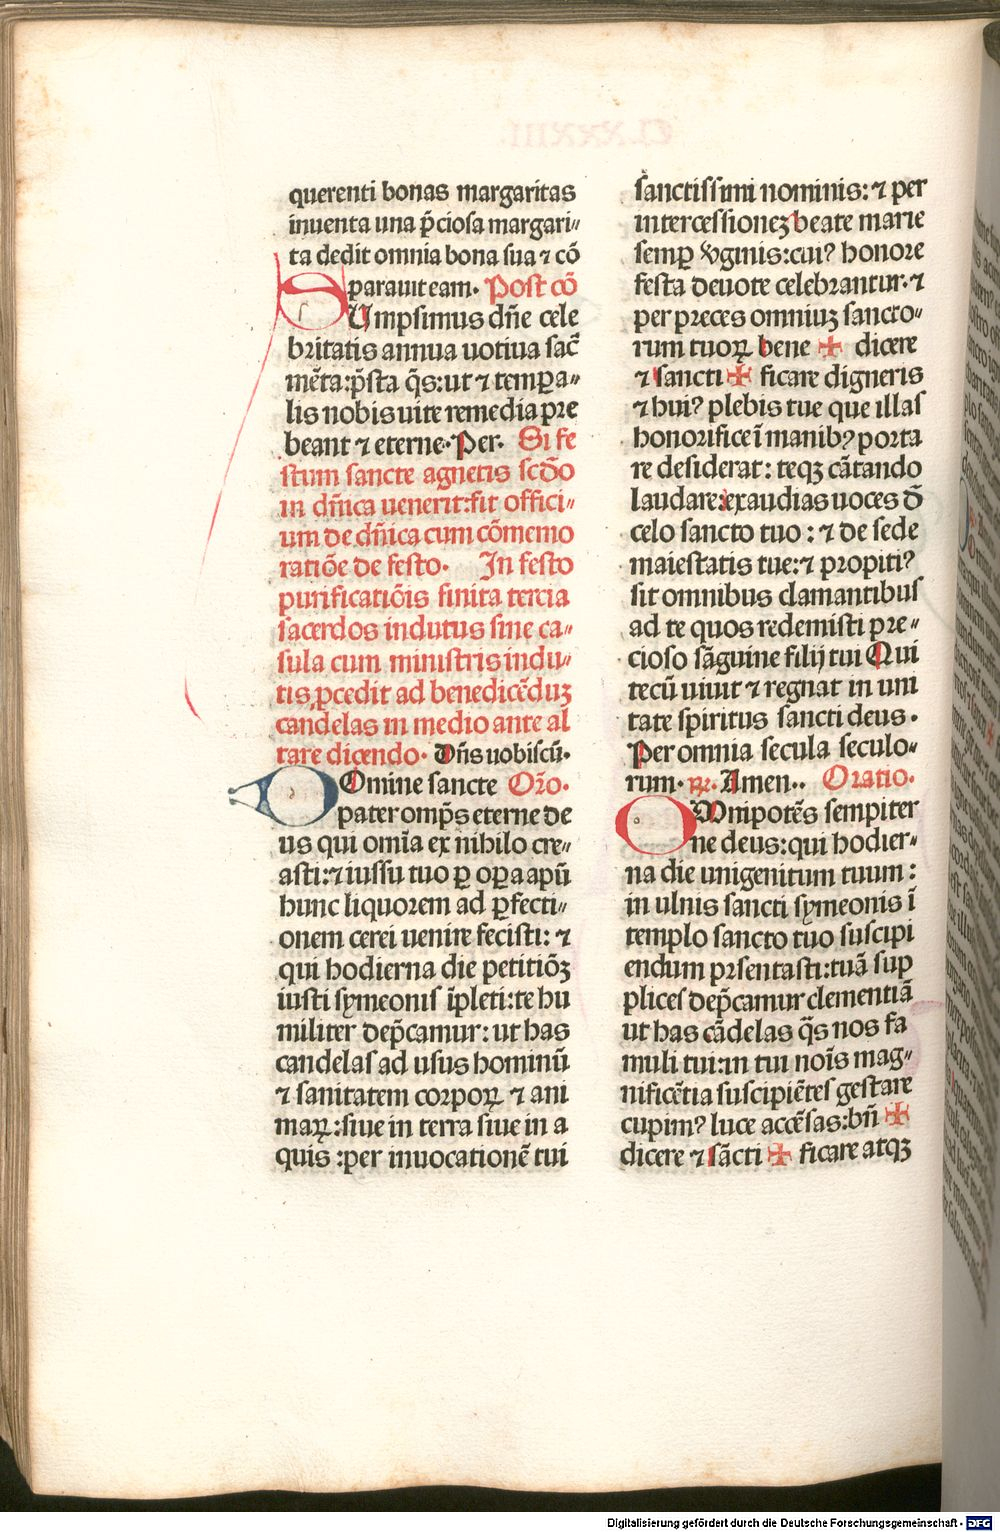 querenti bonas margaritas
inuenta una p̄ciosa margari⸗
ta dedit omnia bona sua ⁊ cō
parauit eam. Post cō
SUmpsimus dn̄e cele
britatis annua uotiua sac̄
mēta: p̄sta q̄s: ut ⁊ temꝑa⸗
lis nobis uite remedia pre
beant ⁊ eterne. Per. Si fe
stum sancte agnetis scd̄o
in dn̄ica uenerit: fit offici⸗
um de dn̄ica cum cōmemo
ratiōe de festo. In festo
purificatiōis finita tercia
sacerdos indutus sine ca⸗
sula cum ministris indu⸗
tis ꝓcedit ad benedicēduꝫ
candelas in medio ante al
tare dicendo. Dn̄s uobiscū.
DOmine sancte Or̄o.
pater omp̄s eterne de
us qui om̄ia ex nihilo cre⸗
asti: ⁊ iussu tuo ꝑ oꝑa apū
hunc liquorem ad ꝑfecti⸗
onem cerei uenire fecisti: ⁊
qui hodierna die petitiōꝫ
iusti symeonis īpleti: te hu
militer dep̄camur: ut has
candelas ad usus hominū
⁊ sanitatem corpoꝝ ⁊ ani
maꝝ: siue in terra siue in a
quis: per inuocationē tui
sanctissimi nominis: ⁊ per
intercessioneꝫ beate marie
semꝑ v̄ginis: cui⁹ honore
festa deuote celebrantur. ⁊
per preces omniuꝫ sancto⸗
rum tuoꝝ bene ✠ dicere
⁊ sancti ✠ ficare digneris
⁊ hui⁹ plebis tue que illas
honorifice ī manib⁹ porta
re desiderat: teqꝫ cātando
laudare: exaudias uoces d̄
celo sancto tuo: ⁊ de sede
maiestatis tue: ⁊ propiti⁹
sit omnibus clamantibus
ad te quos redemisti pre⸗
cioso sāguine filij tui Qui
tecū uiuit ⁊ regnat in uni
tate spiritus sancti deus.
Per omnia secula seculo⸗
rum. ℟. Amen.. Oratio.
OMnipotēs sempiter
ne deus: qui hodier⸗
na die unigenitum tuum:
in ulnis sancti symeonis ī
templo sancto tuo suscipi
endum prsentasti: tuā sup
plices dep̄camur clementiā
ut has cādelas q̄s nos fa
muli tui: in tui noīs mag⸗
nificētia suscipiētes gestare
cupim⁹ luce accēsas: bn̄ ✠
dicere ⁊ sācti ✠ ficare atqꝫ
Digitalisierung gefördert durch die Deutsche Forschungsgemeinschaft - DFG